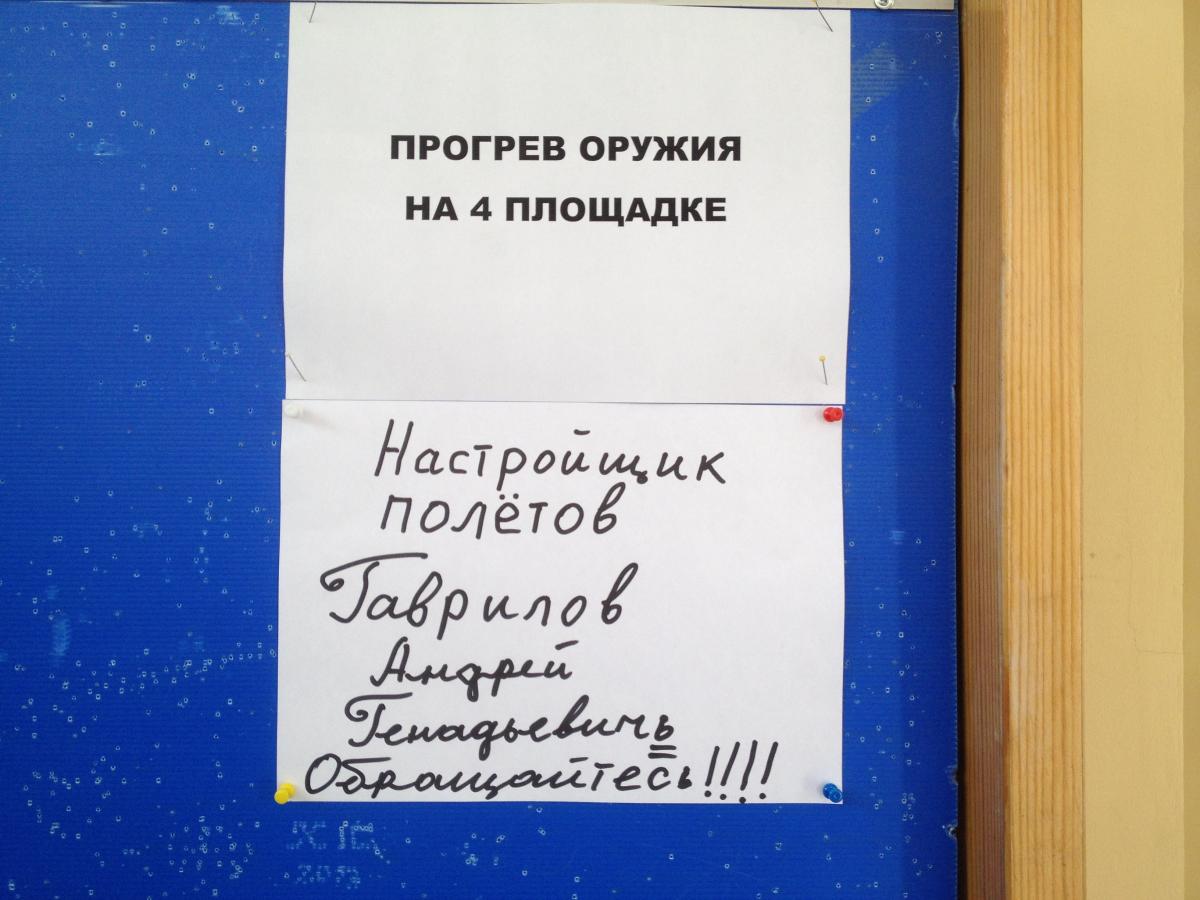 ПРОГРЕВ ОРУЖИЯ
НА 4 ПЛОЩАДКЕ
Настройщик
полётов
Гаврилов
Андрей
Генадьевичь
Обращайтесь!!!!